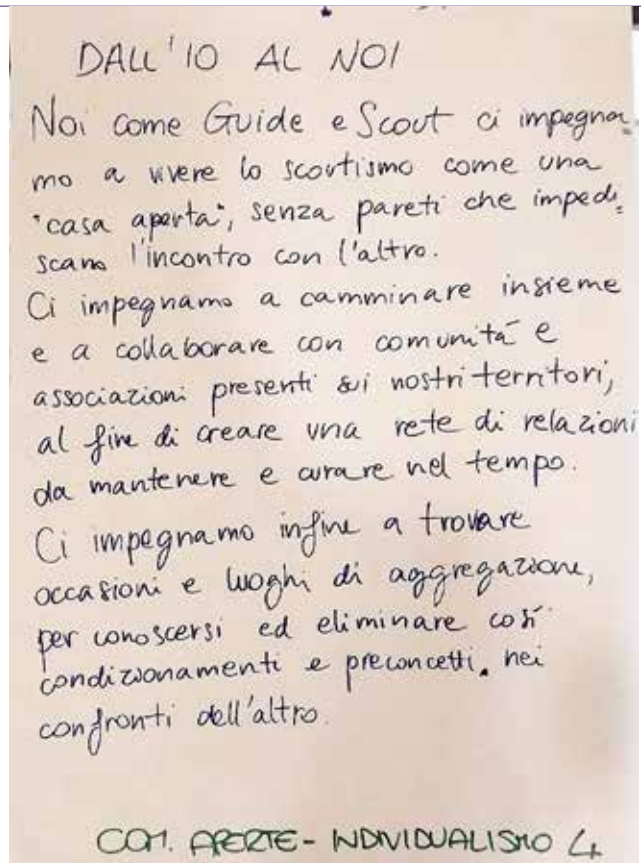 DALL'IO AL NOI
Noi come Guide e Scout ci impegna
mo a vivere lo scoutismo come una
"casa aperta", senza pareti che impedi
scano l'incontro con l'altro.
Ci impegnamo a camminare insieme
e a collaborare con comunità e
associazioni presenti sui nostri territori,
al fine di creare una rete di relazioni
da mantenere e curare nel tempo.
Ci impegnamo infine a trovare
occasioni e luoghi di aggregazione,
per conoscersi ed eliminare così
condizionamenti e preconcetti. nei
confronti dell'altro.
COM. APERTE - INDIVIDUALISMO 4